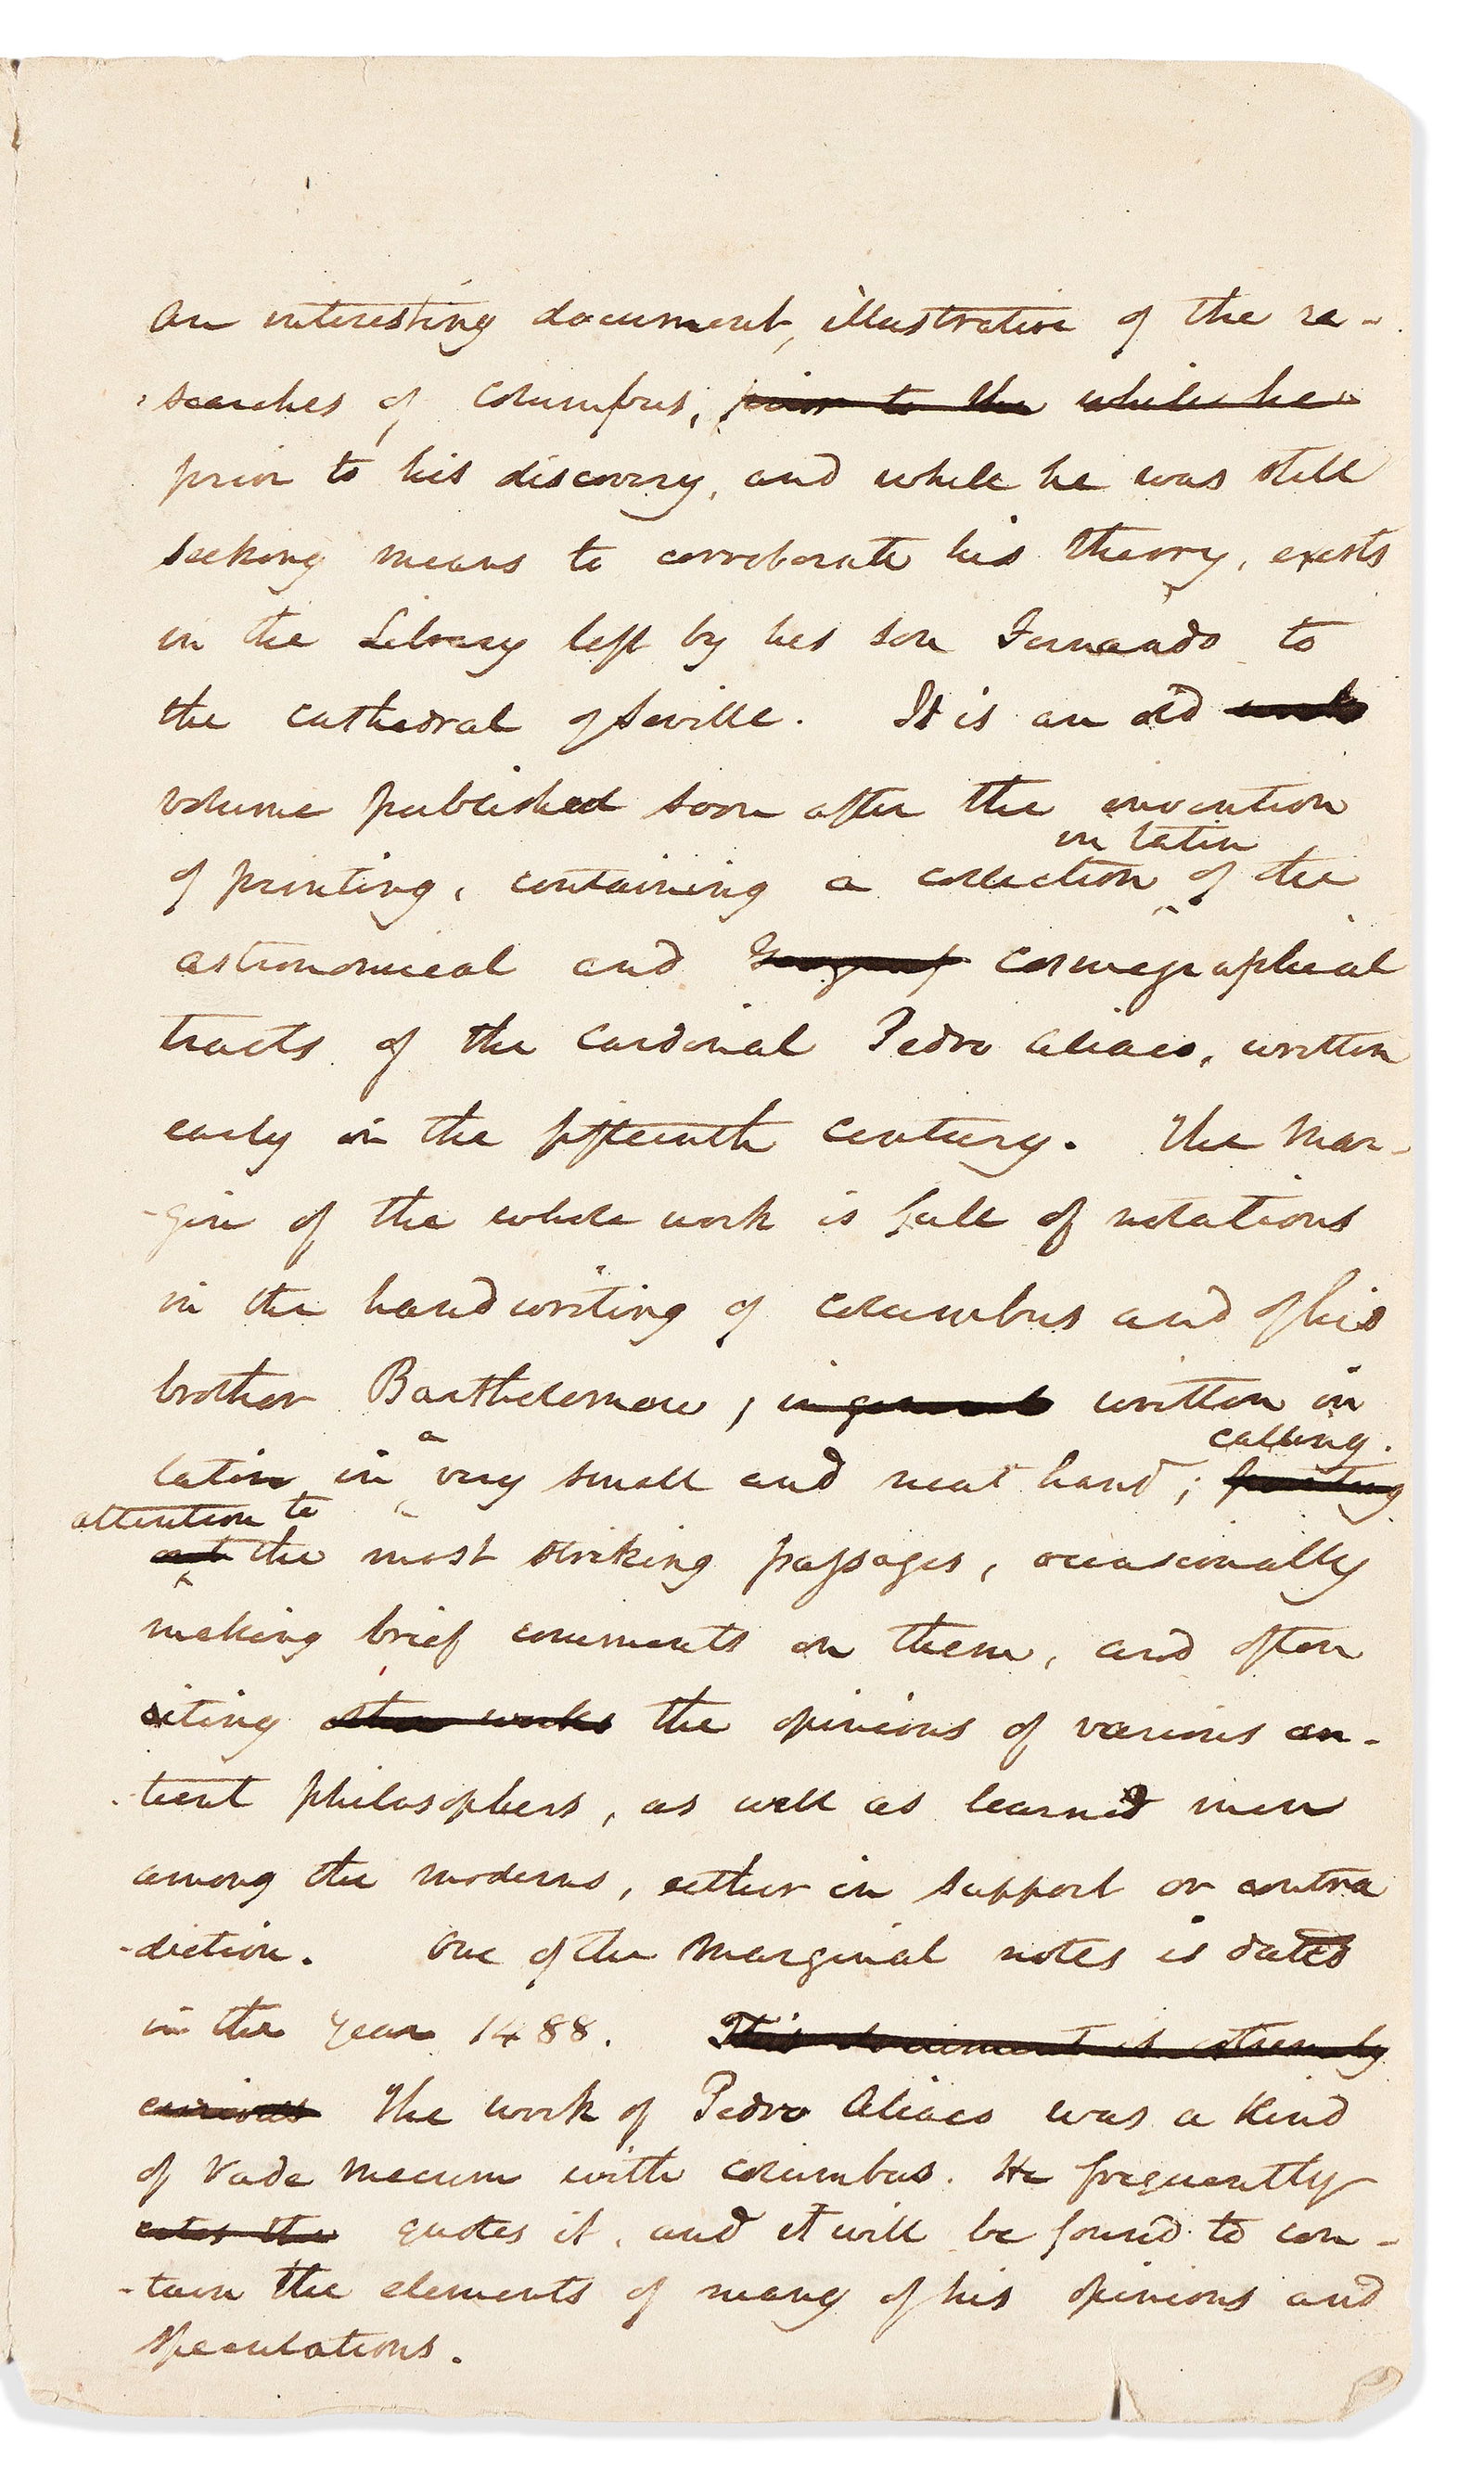 An interesting document, illustrative of the re-
-searches of Columbus, prior to the while he
prior to his discovery, and while he was still
seeking means to corroborate his theory, exists
in the Library left by his son Fernando to
the cathedral of Seville. It is an old work
volume published soon after the invention
in latin
of printing, containing a collection of the
astronomical and Geograp cosmographical
tracts of the Cardinal Pedro Aliaco, written
early in the fifteenth century. The mar-
-gin of the whole work is full of notations
in the handwriting of Columbus and of his
brother Barthelemew, in general written in
calling
latin in a very small and neat hand; pointing
attention to
out the most striking passages, occasionally
making brief comments on them, and often
citing other works the opinions of various an-
-tient philosophers, as well as learned men
among the moderns, either in support or contra
-diction. One of the marginal notes is dated
in the year 1488. This document is extremely
curious The work of Pedro Aliaco was a kind
of Vade mecum with Columbus. He frequently
cites the quotes it, and it will be found to con-
-tain the elements of many of his opinions and
speculations.